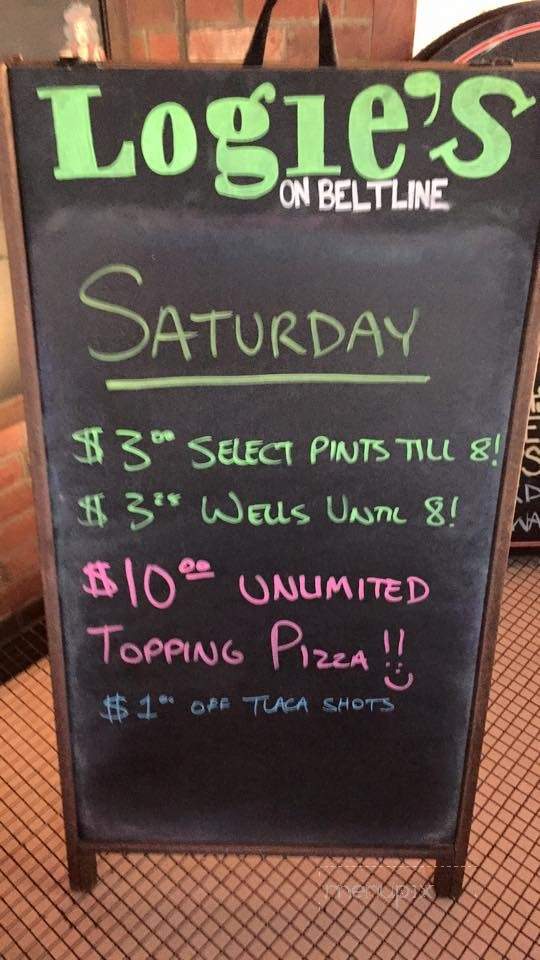 Logie's
ON BELTLINE
SATURDAY
$3.00 SELECT PINTS TILL 8!
$3.25 WELLS UNTIL 8!
$10.00 UNLIMITED
TOPPING PIZZA!!
$1.00 OFF TUACA SHOTS
menupix